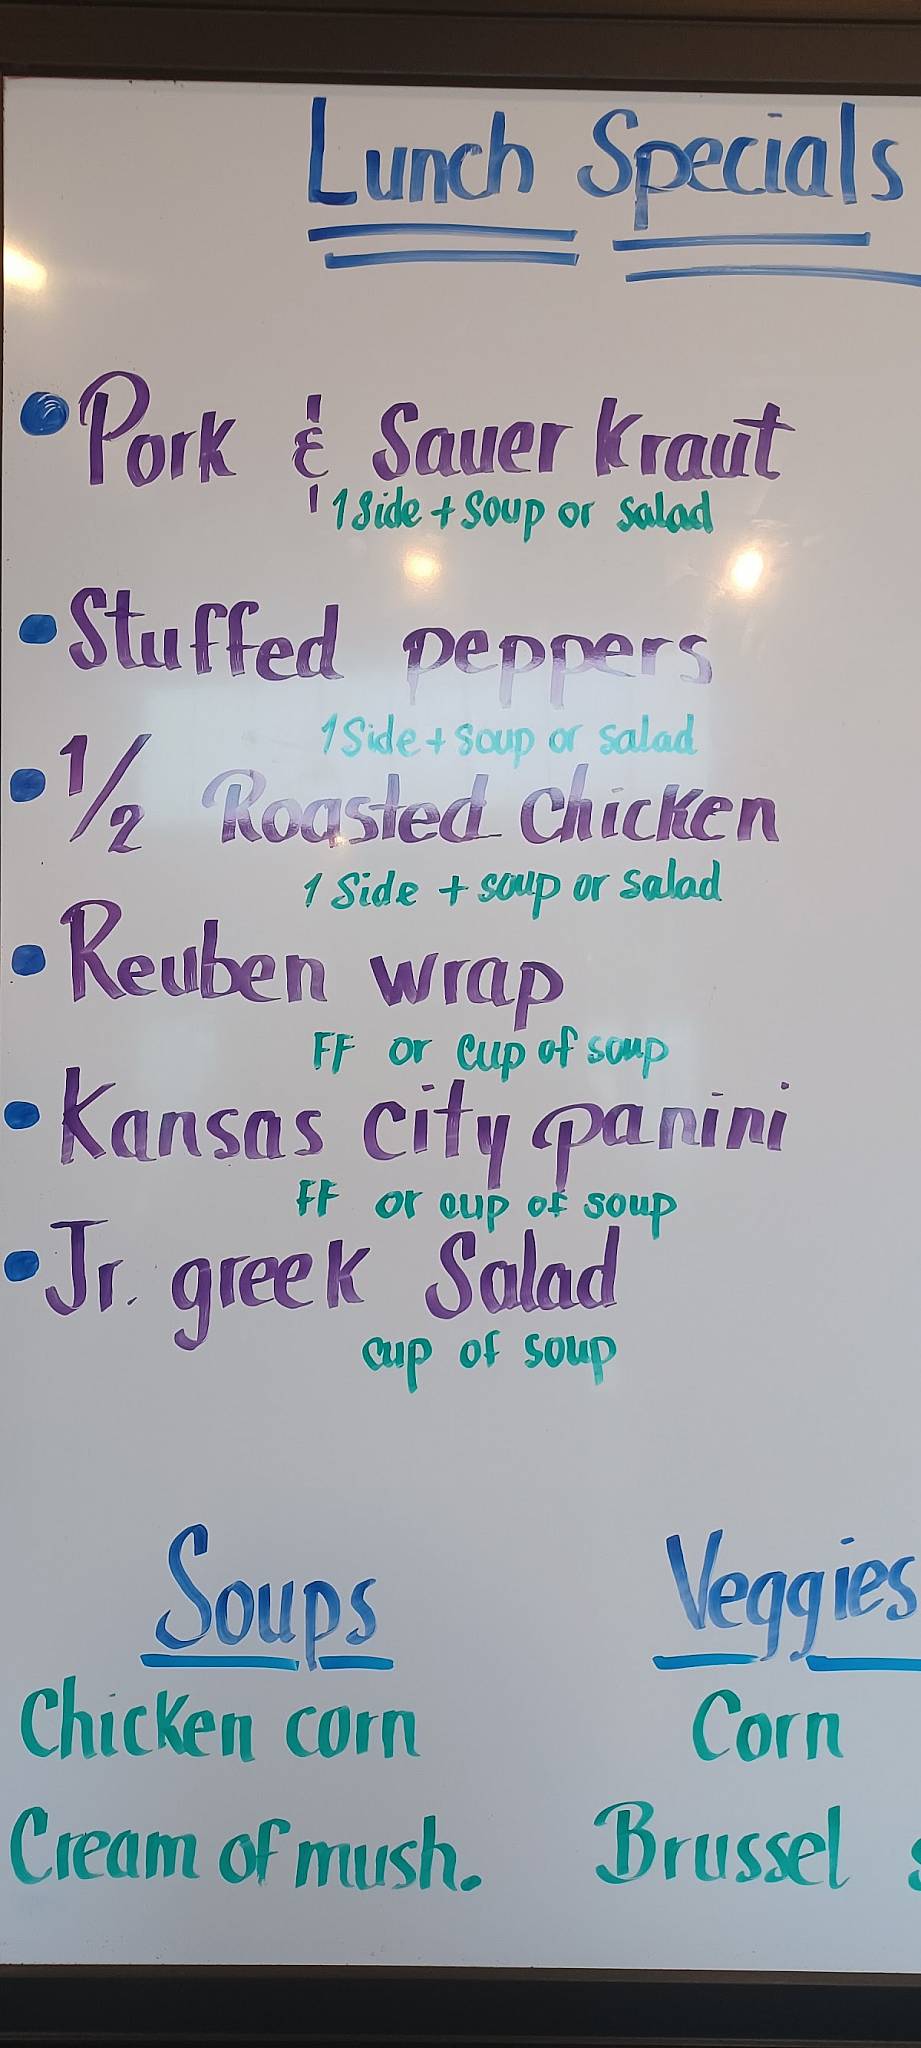 Lunch Specials
• Pork & Sauer Kraut
1 Side + Soup or salad
• Stuffed peppers
1 Side + soup or salad
• 1/2 Roasted chicken
1 Side + soup or salad
• Reuben wrap
FF or cup of soup
• Kansas city panini
FF or cup of soup
• Jr. greek Salad
cup of soup
Soups
Veggies
Chicken corn
Corn
Cream of mush.
Brussel